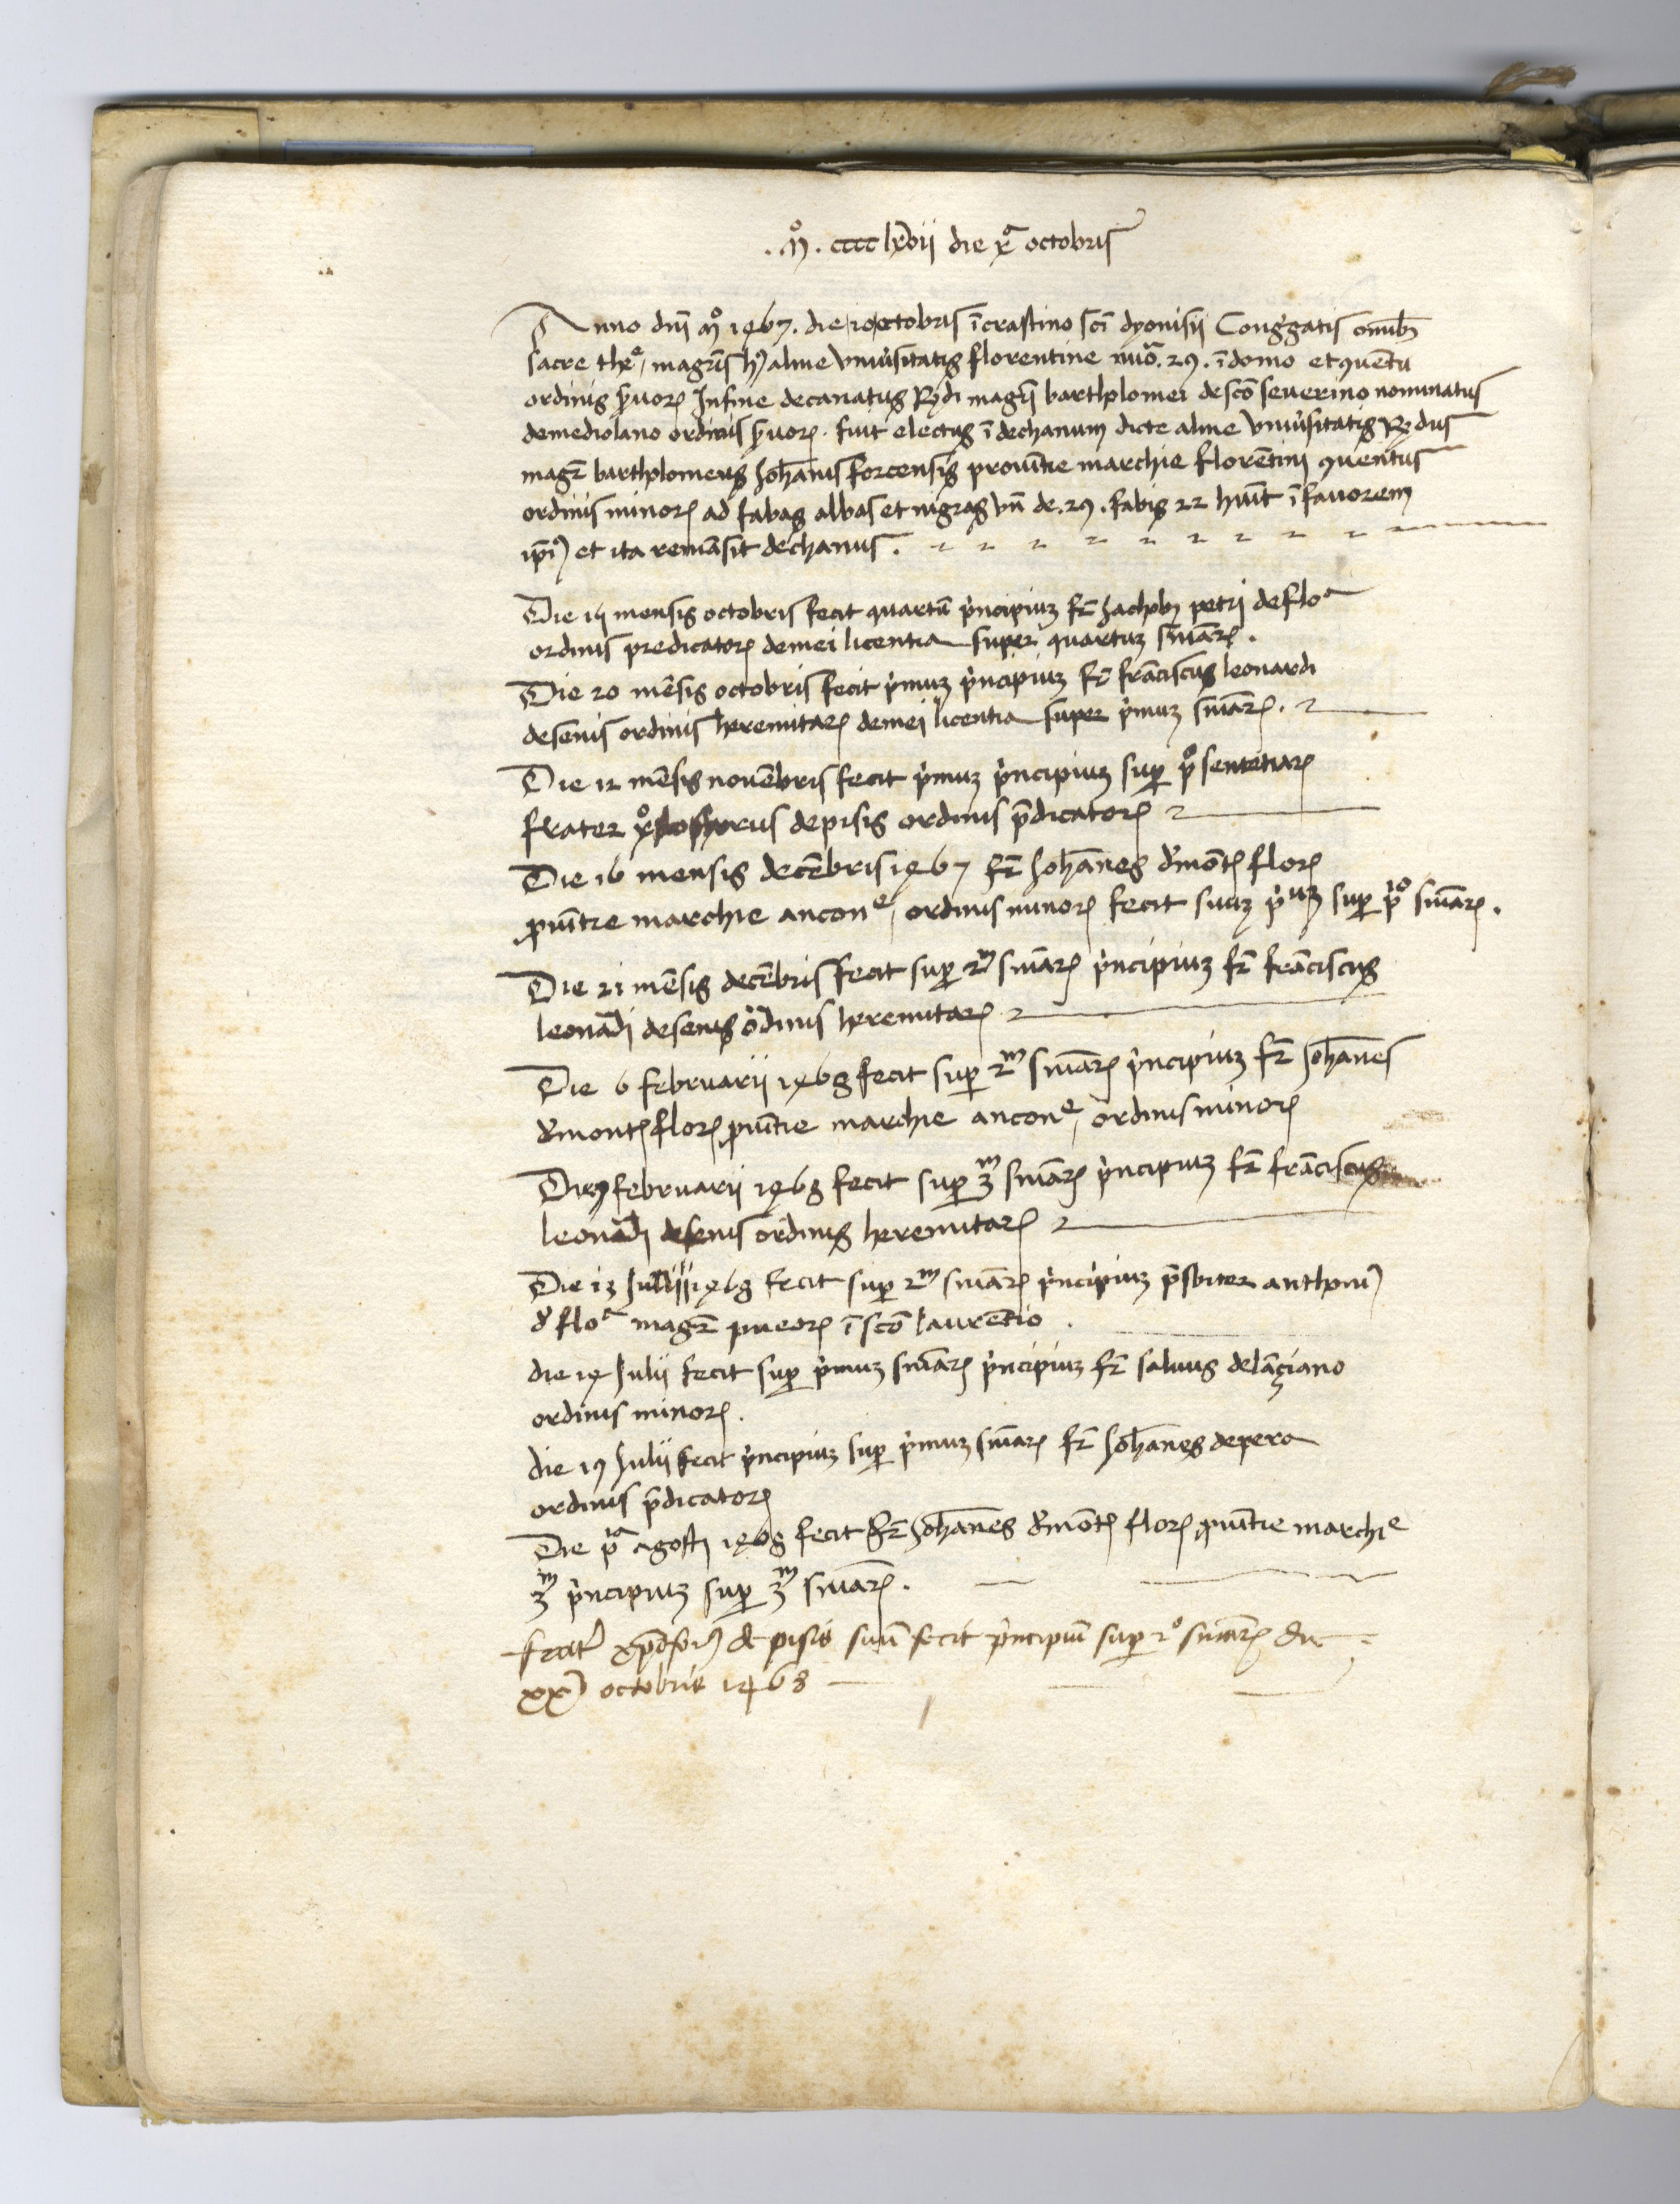 .Mº. cccc lxvii die xª octobris
Anno dni Mº 1467. die 10 octobris i crastino sci dyonisii Congregatis omib
sacre the magris h alme universitatis florentine nuo. 29. i domo et quentu
ordinis servor In fine decanatus Rdi magri bartholomei de sco severino nominatus
de mediolano ordinis servor. fuit electus i dechanum dicte alme universitatis Rdus
magr bartholomeus Johanis forcensis provintie marchie florentini quentus
ordinis minor ad fabas albas et nigras un de. 29. fabis 22 huit i favorem
ipi et ita remasit dechanus.
Die mensis octobris fecit quartu principium fr Jachobus petri de floª
ordinis predicator de mei licentia super quartum sniar.
Die 20 mesis octobris fecit primum principium fr franciscus leonardi
de senis ordinis heremitar de mei licentia super primum sniar.
Die 12 mesis novebris fecit primum principium sup pº sentetiar
frater depisis ordinis predicator
Die 16 mensis decebris 1467 fr Johanes de mote flor
provintie marchie ancone ordinis minor fecit suum pium sup pº sniar.
Die 21 mesis decebris fecit sup 2m sniar principium fr franciscus
leonadi de senis ordinis heremitar
Die 6 februarii 1468 fecit sup 2m sniar principium fr Johanes
de monte flor provintie marchie ancone ordinis minor
Die 9 februarii 1468 fecit sup 3m sniar principium fr franciscus
leonadi de senis ordinis heremitar
Die 13 Julii 1468 fecit sup 2m sniar principium prsbiter anthonius
de floª magr pueor i sco laurentio.
die 14 Julii fecit sup primum sniar principium fr salvus de lanciano
ordinis minor.
die 19 Julii fecit principium sup primum sniar fr Johanes de pera
ordinis predicator
Die pª agosti 1468 fecit fr Johanes de mote flor provintie marchie
3m principium sup 3m sniar.
frater xpofor de pisis suu fecit principiu sup 2º sniar die
xx octobris 1468